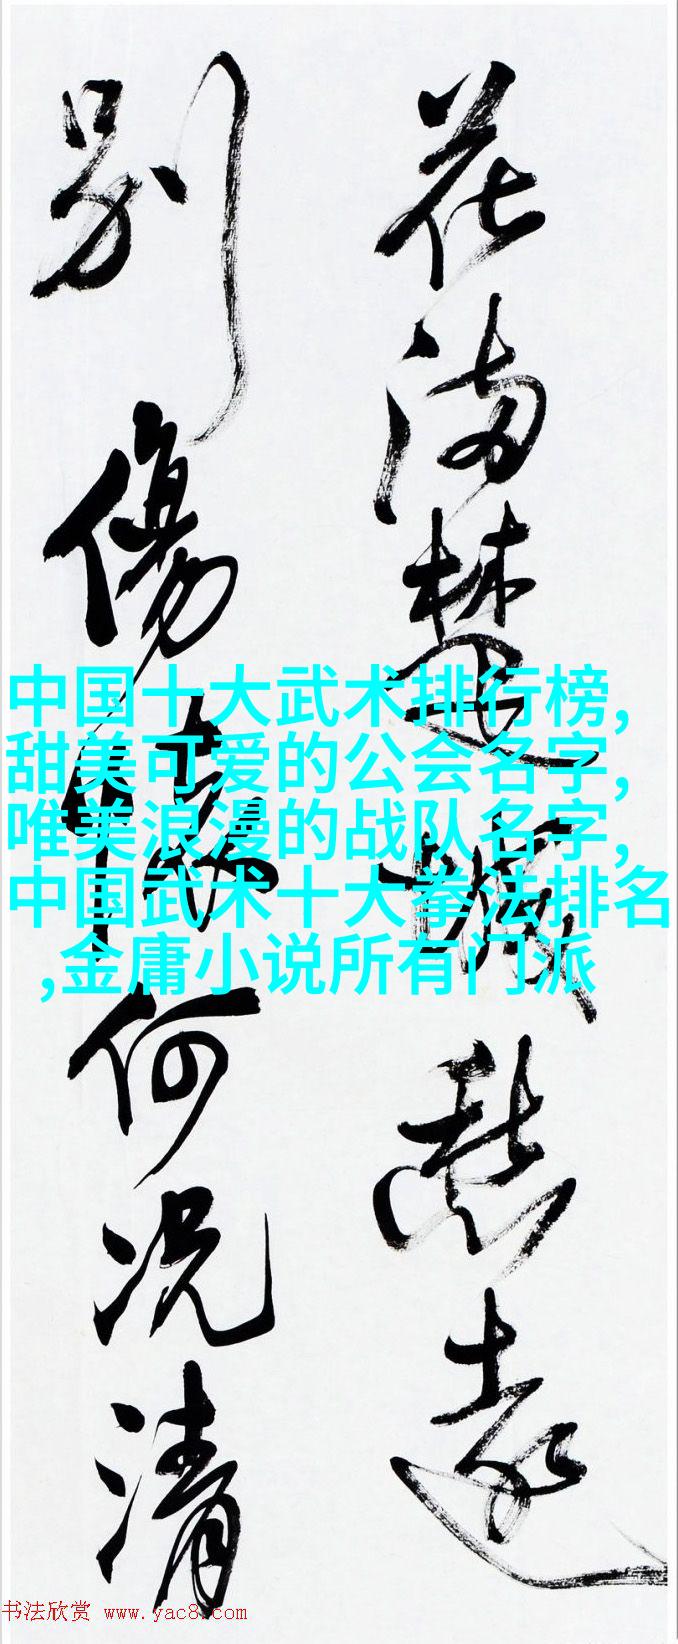 花滿楚城愁遠
别傷懷何况清
中国十大武术排行榜,
甜美可爱的公会名字,
唯美浪漫的战队名字,
中国武术十大拳法排名
,金庸小说所有门派
书法欣赏 www.yac8.com